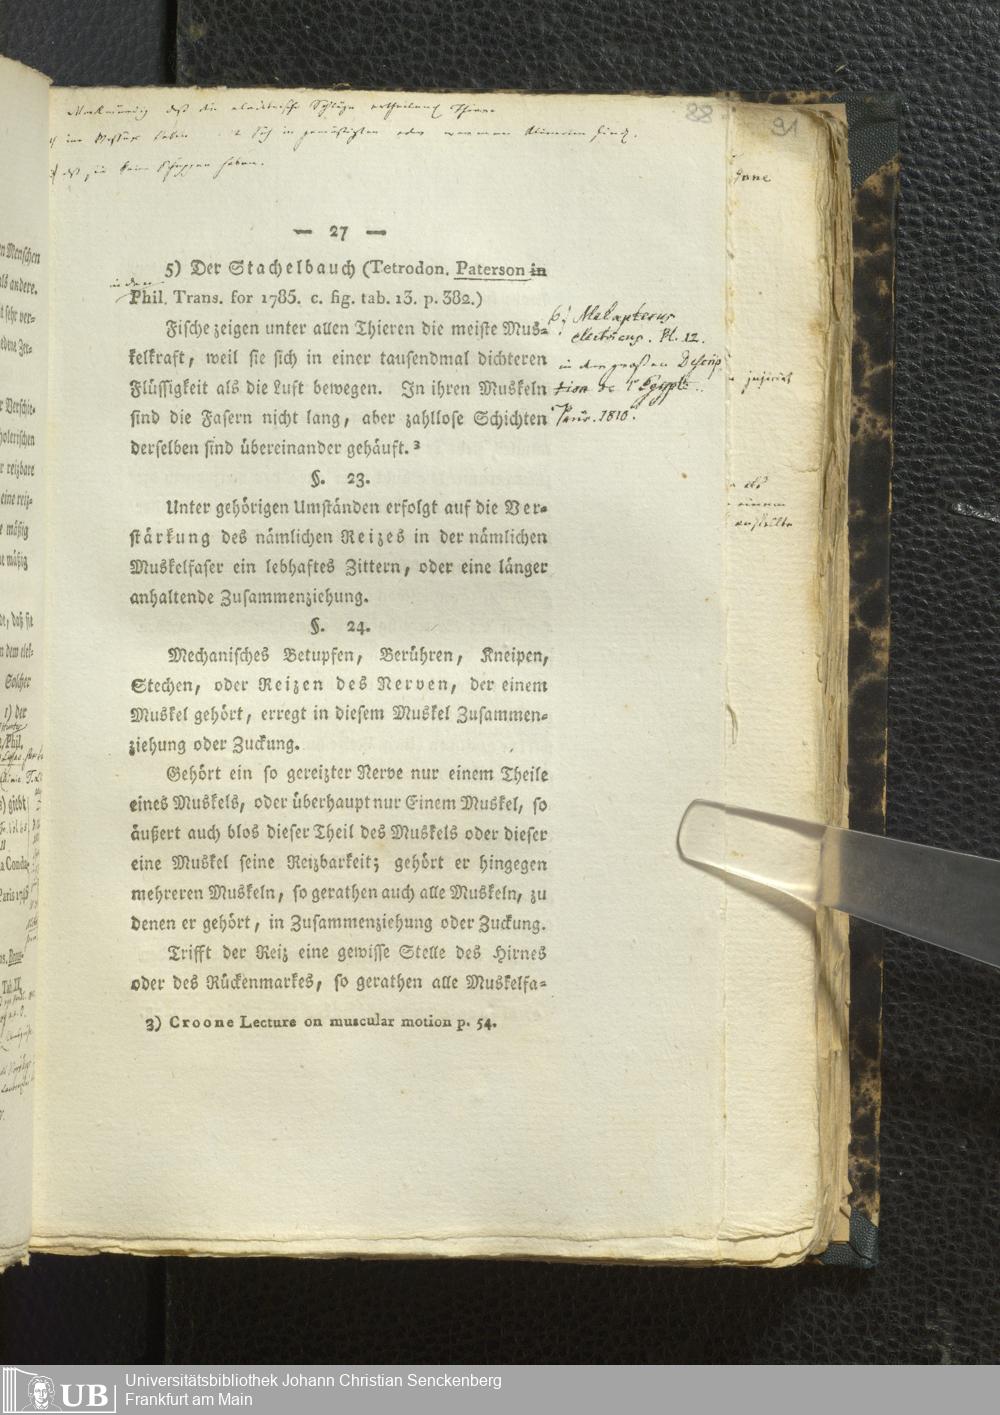 Merkwürdig daß die electrische Schläge ertheilend Thiere
im Wasser leben sich in gemäßigten oder warmen Climaten sind.
daß sie keine Schuppen haben.
88
91
— 27 —
5) Der Stachelbauch (Tetrodon. Paterson in
in den
Phil. Trans. for 1785. c. fig. tab. 13. p. 382.)
Fische zeigen unter allen Thieren die meiste Mus-
kelkraft, weil sie sich in einer tausendmal dichteren
Flüssigkeit als die Luft bewegen. In ihren Muskeln
sind die Fasern nicht lang, aber zahllose Schichten
derselben sind übereinander gehäuft.³
6) Malapterus
electricus. Pl. 12.
in der großen Descrip
tion de l'Egypte.
Paris. 1810.
§. 23.
Unter gehörigen Umständen erfolgt auf die Ver-
stärkung des nämlichen Reizes in der nämlichen
Muskelfaser ein lebhaftes Zittern, oder eine länger
anhaltende Zusammenziehung.
§. 24.
Mechanisches Betupfen, Berühren, Kneipen,
Stechen, oder Reizen des Nerven, der einem
Muskel gehört, erregt in diesem Muskel Zusammen-
ziehung oder Zuckung.
Gehört ein so gereizter Nerve nur einem Theile
eines Muskels, oder überhaupt nur Einem Muskel, so
äußert auch blos dieser Theil des Muskels oder dieser
eine Muskel seine Reizbarkeit; gehört er hingegen
mehreren Muskeln, so gerathen auch alle Muskeln, zu
denen er gehört, in Zusammenziehung oder Zuckung.
Trifft der Reiz eine gewisse Stelle des Hirnes
oder des Rückenmarkes, so gerathen alle Muskelfa-
3) Croone Lecture on muscular motion p. 54.
UB
Universitätsbibliothek Johann Christian Senckenberg
Frankfurt am Main